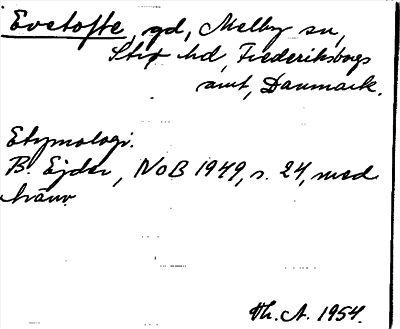 Evetofte, gd, Melby sn,
Strø hd, Frederiksborgs
amt, Danmark.
Etymologi.
B. Ejder, NoB 1949, s. 24, med
hänv.
Th. A. 1954.